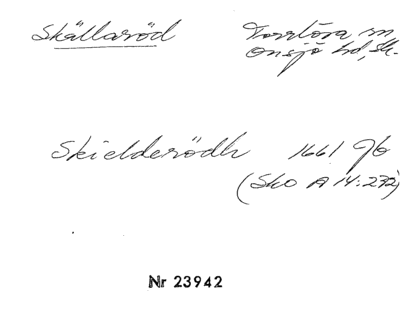 Skällaröd Torrlösa sn,
Onsjö hd, Sk.
Skielderödh 1661 Jb
(Sko A 14:272)
Nr 23942